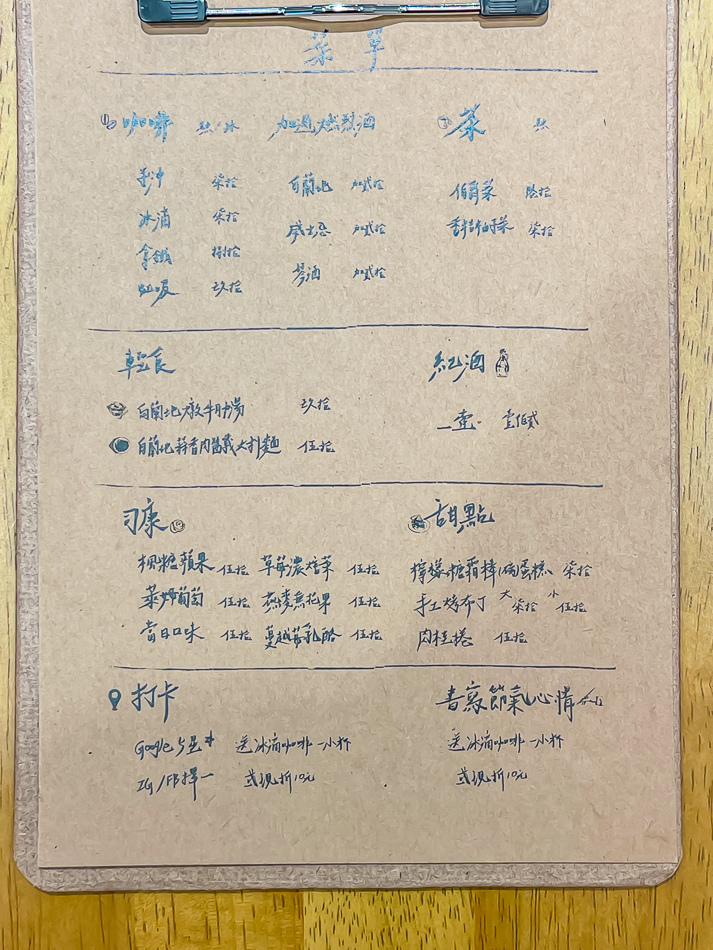 菜單
咖啡 熱/冰 加過火燃烈酒 茶 熱
手沖 柒拾 白蘭地 加貳拾 伯爵茶 陸拾
冰滴 柒拾 威士忌 加貳拾 香柚茶 柒拾
拿鐵 捌拾 琴酒 加貳拾
虹吸 玖拾
輕食 紅酒
白蘭地燉牛肋湯 玖拾 一壺 壹佰貳
白蘭地蒜香肉醬義大利麵 伍拾
司康 甜點
楓糖蘋果 伍拾 草莓濃焙茶 伍拾 檸檬糖霜棒 蛋糕 柒拾
萊姆葡萄 伍拾 燕麥無花果 伍拾 手工烤布丁 大 柒拾 小 伍拾
當日口味 伍拾 蔓越莓乳酪 伍拾 肉桂捲 伍拾
打卡 書寫節氣心情
Google 5星 送冰滴咖啡一小杯 送冰滴咖啡一小杯
IG/FB擇一 或現折10元 或現折10元